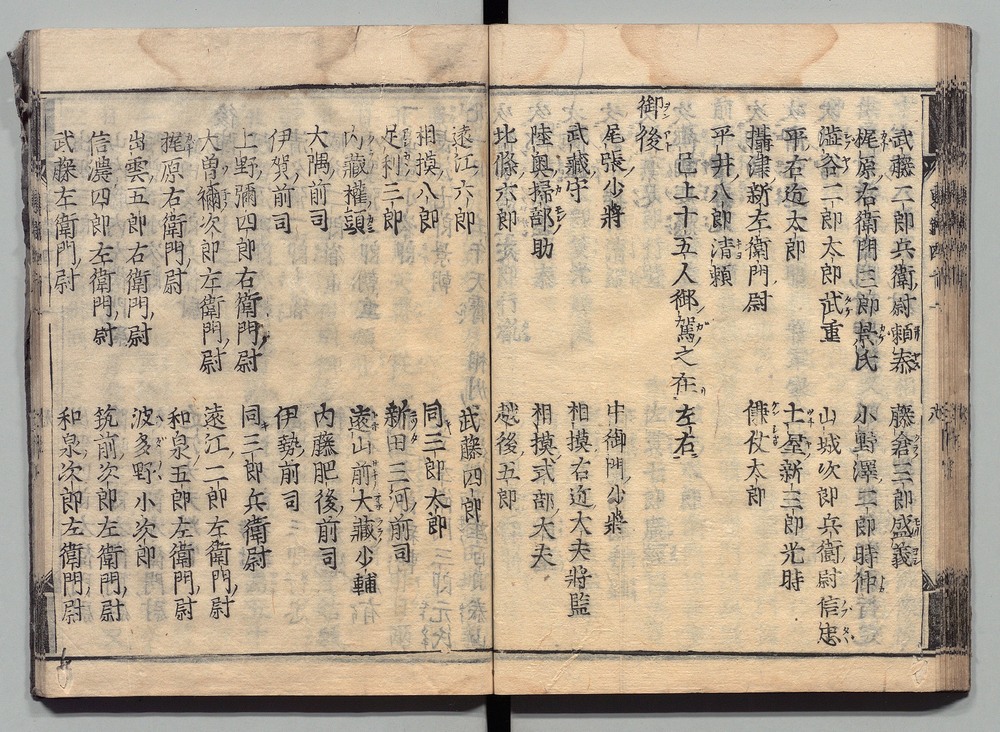 武藤二郎兵衛尉頼泰　藤倉三郎盛義
梶原右衛門三郎景氏　小野澤二郎時仲
澁谷二郎太郎武重　山城次郎兵衛尉信忠
平右近太郎　土屋新三郎光時
攝津新左衛門尉　傔仗太郎
平井八郎清頼
已上十五人御駕之在左右
御後
尾張少將　中御門少將
武藏守　相摸右近大夫將監
陸奥掃部助　相摸式部大夫
北條六郎　越後五郎
遠江六郎　武藤四郎
相摸八郎　同三郎太郎
足利三郎　新田三河前司
内藏權頭　遠山前大藏少輔
大隅前司　内藤肥後前司
伊賀前司　伊勢前司
上野彌四郎右衛門尉　同三郎兵衛尉
大曽禰次郎左衛門尉　遠江二郎左衛門尉
梶原右衛門尉　和泉五郎左衛門尉
出雲五郎右衛門尉　波多野小次郎
信濃四郎左衛門尉　筑前次郎左衛門尉
武藤左衛門尉　和泉次郎左衛門尉